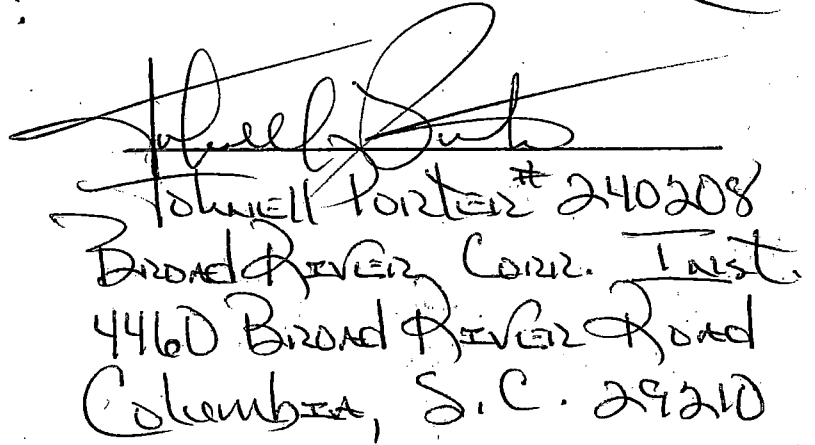 Johnell Porter # 240208
Broad River Corr. Inst.
4460 Broad River Road
Columbia, S.C. 29210